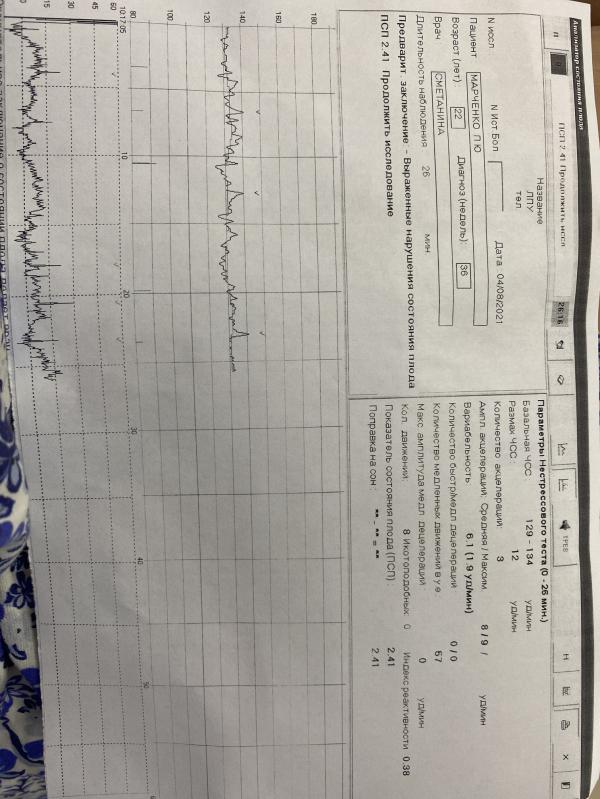 Анализатор состояния плода
ПСП 2.41 Продолжить иссл
26:16
ТРЕВ
Н
Название
ЛПУ
тел
N иссл
N Ист Бол
Дата 04/08/2021
Пациент МАРЧЕНКО П Ю
Возраст (лет) 22 Диагноз (недель): 36
Врач СМЕТАНИНА
Длительность наблюдения 26 мин
Предварит. заключение: - Выраженные нарушения состояния плода
ПСП 2.41 Продолжить исследование
Параметры Нестрессового теста (0 - 26 мин.)
Базальная ЧСС 129 - 134 уд/мин
Размах ЧСС: 12 уд/мин
Количество акцелераций: 3
Ампл. акцелераций: Средняя / Максим 8 / 9 / уд/мин
Вариабельность 6.1 (1.9 уд/мин)
Количество быстр/медл децелераций 0 / 0
Количество медленных движений в у.е. 67
Макс. амплитуда медл. децелераций 0 уд/мин
Кол. движений: 8 Икотоподобных 0 Индекс реактивности 0.38
Показатель состояния плода (ПСП): 2.41
Поправка на сон: ** - ** = ** 2.41
180
160
140
120
100
80
10:17:05
10
20
30
40
50
60
45
30
15
0